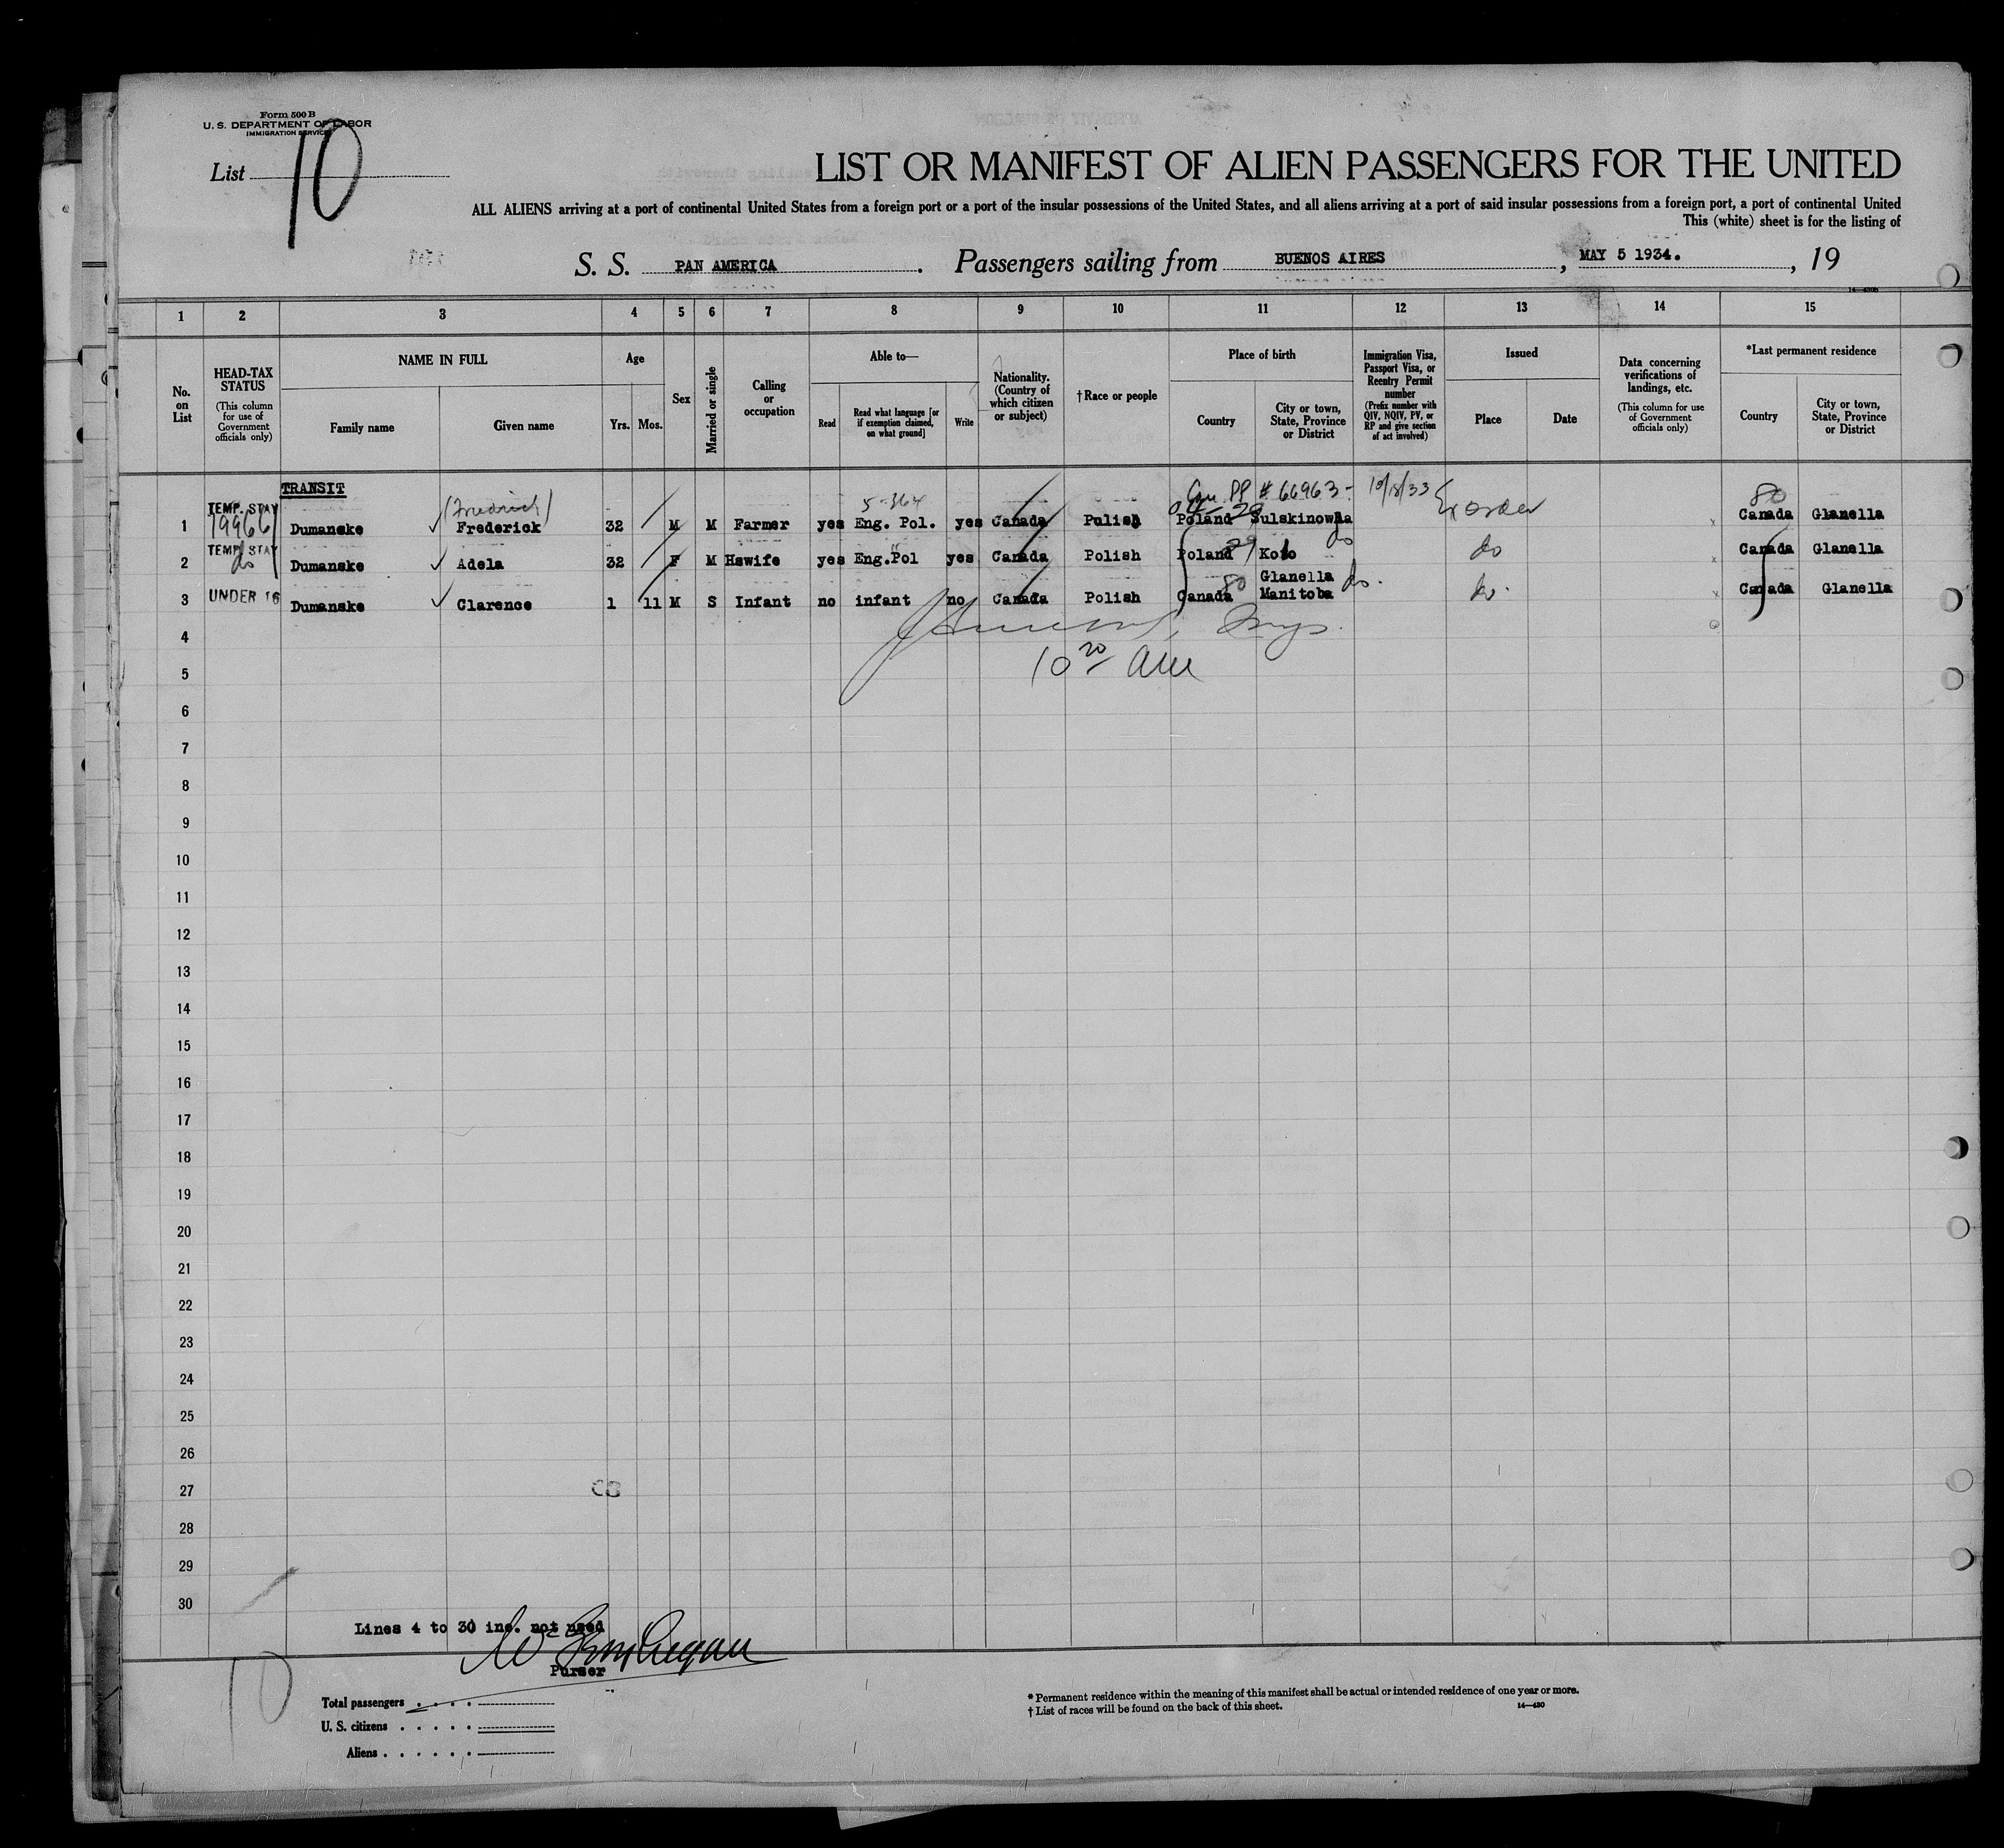 Form 500 B
U. S. DEPARTMENT OF LABOR
IMMIGRATION SERVICE
List 10
LIST OR MANIFEST OF ALIEN PASSENGERS FOR THE UNITED
ALL ALIENS arriving at a port of continental United States from a foreign port or a port of the insular possessions of the United States, and all aliens arriving at a port of said insular possessions from a foreign port, a port of continental United
This (white) sheet is for the listing of
S. S. PAN AMERICA. Passengers sailing from BUENOS AIRES, MAY 5 1934., 19
1 2 3 4 5 6 7 8 9 10 11 12 13 14 15
No. on List
HEAD-TAX STATUS (This column for use of Government officials only)
NAME IN FULL
Family name Given name
Age
Yrs. Mos.
Sex
Married or single
Calling or occupation
Able to—
Read
Read what language [or if exemption claimed, on what ground]
Write
Nationality. (Country of which citizen or subject)
†Race or people
Place of birth
Country
City or town, State, Province or District
Immigration Visa, Passport Visa, or Reentry Permit number (Prefix number with QIV, NQIV, PV, or RP and give section of act involved)
Issued
Place Date
Data concerning verifications of landings, etc. (This column for use of Government officials only)
*Last permanent residence
Country
City or town, State, Province or District
TRANSIT
(Friedrich) 5-364 PP # 66963- 10/18/33 80
1 TEMP. STAY 19966 Dumanske Frederick 32 M M Farmer yes Eng. Pol. yes Canada Polish Poland Sulskinowna Canada Glanella
2 TEMP. STAY do Dumanske Adela 32 F M Hswife yes Eng.Pol yes Canada Polish Poland Kolo do do Canada Glanella
3 UNDER 16 Dumanske Clarence 1 11 M S Infant no infant no Canada Polish Canada 80 Glanella Manitoba do. do. Canada Glanella
4
10 20 AM
5
6
7
8
9
10
11
12
13
14
15
16
17
18
19
20
21
22
23
24
25
26
27
28
29
30
Lines 4 to 30 inc. not used
Purser
10
Total passengers
U. S. citizens
Aliens
* Permanent residence within the meaning of this manifest shall be actual or intended residence of one year or more.
† List of races will be found on the back of this sheet.
14—430